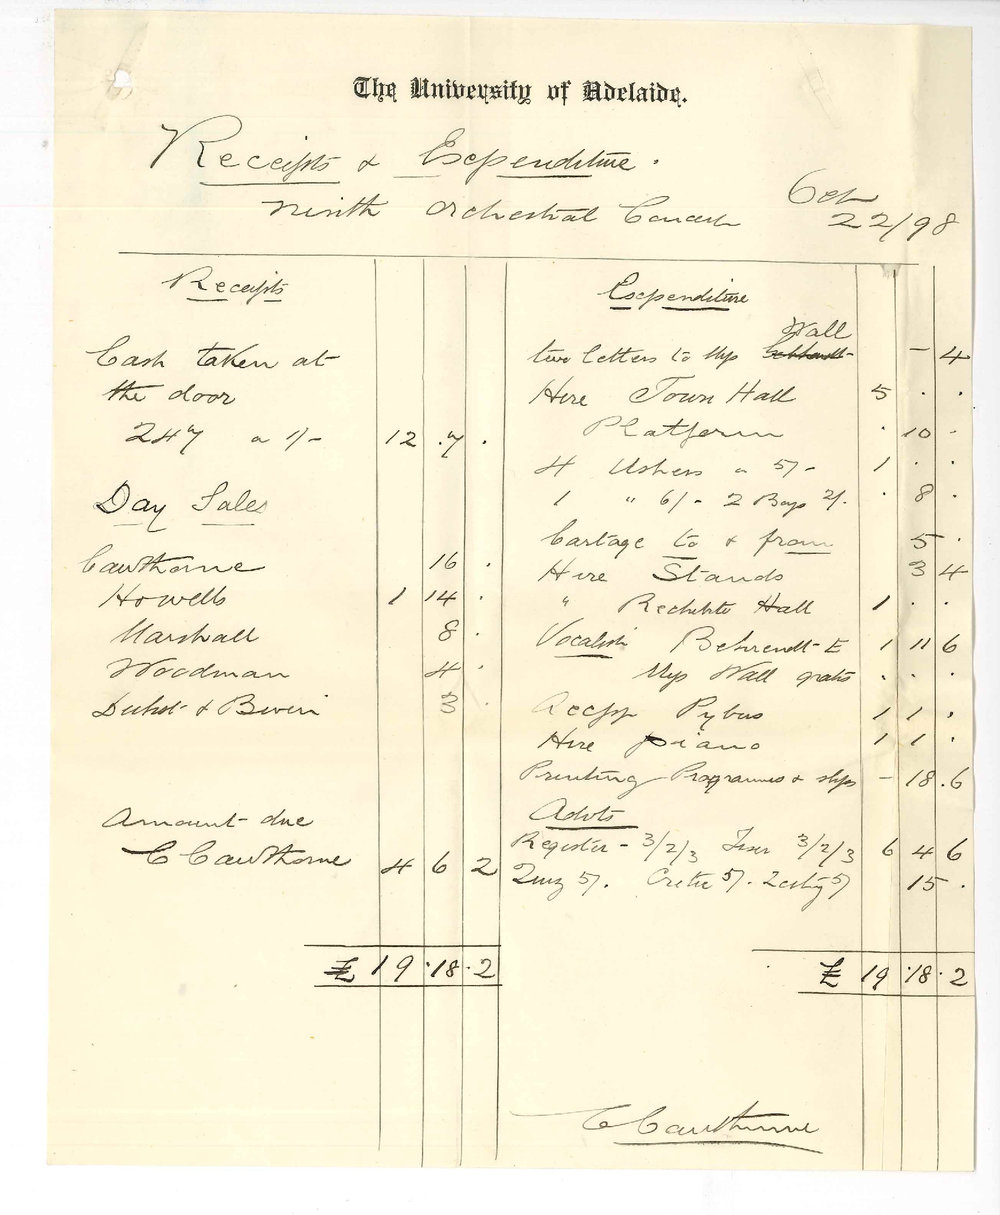 The University of Adelaide.
Receipts & Expenditure.
Ninth Orchestral Concert Oct 22/98
Receipts
Cash taken at
the door
247 a 1/- 12 . 7 .
Day Sales
Cawthorne 16 .
Howells 1 14 .
Marshall 8 .
Woodman 4 .
& 3 .
Amount due
C Cawthorne 4 6 2
£ 19 . 18 . 2
Expenditure
two letters to Miss Wall - 4
Hire Town Hall 5 . .
Platform . 10 .
4 Ushers a 5/- 1 . .
1 " 6/- 2 Boys 2/. . 8 .
Cartage to & from 5 .
Hire Stands 3 4
" Rechabite Hall 1 . .
Vocalist Behrendt-E 1 11 6
Miss Wall gratis . . .
Accpt Pybus 1 1 .
Hire piano 1 1 .
Printing Programmes & slips - 18 . 6
Advts
Register - 3/2/3 3/2/3 6 4 6
Quiz 5/. Critic 5/. 5/ 15 .
£ 19 . 18 . 2
C Cawthorne